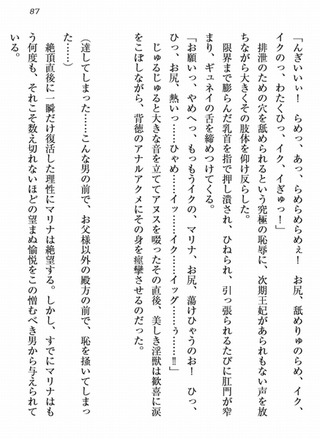 87
「んぎいいぃ！　らめっ、あっ、らめらめらめぇ！　お尻、舐めりゅのらめ、イク、
イクのっ、わたくひっ、イク、イぎゅっ！」
排泄のための穴を舐められるという究極の恥辱に、次期王妃があられもない声を放
ちながら大きくその肢体を仰け反らした。
限界まで膨らんだ乳首を指で押し潰され、ひねられ、引っ張られるたびに肛門が窄
まり、ギュネイの舌を締めつけてくる。
「お願いっ、やめへっ、もっもうイクの、マリナ、お尻、蕩けひゃうのお！　ひっ、
ひっ、お尻、熱いっ……ひゃめ……イッ……イク……イッグ……ぅ……‼」
じゅるじゅると大きな音を立ててアヌスを啜ったその直後、美しき淫獣は歓喜に涙
をこぼしながら、背徳のアナルアクメにその身を痙攣させるのだった。
（達してしまった……こんな男の前で、お父様以外の殿方の前で、恥を掻いてしまっ
た……）
絶頂直後に一瞬だけ復活した理性にマリナは絶望する。しかし、すでにマリナはも
う何度も、それこそ数え切れないほどの望まぬ愉悦をこの憎むべき男から与えられて
いる。